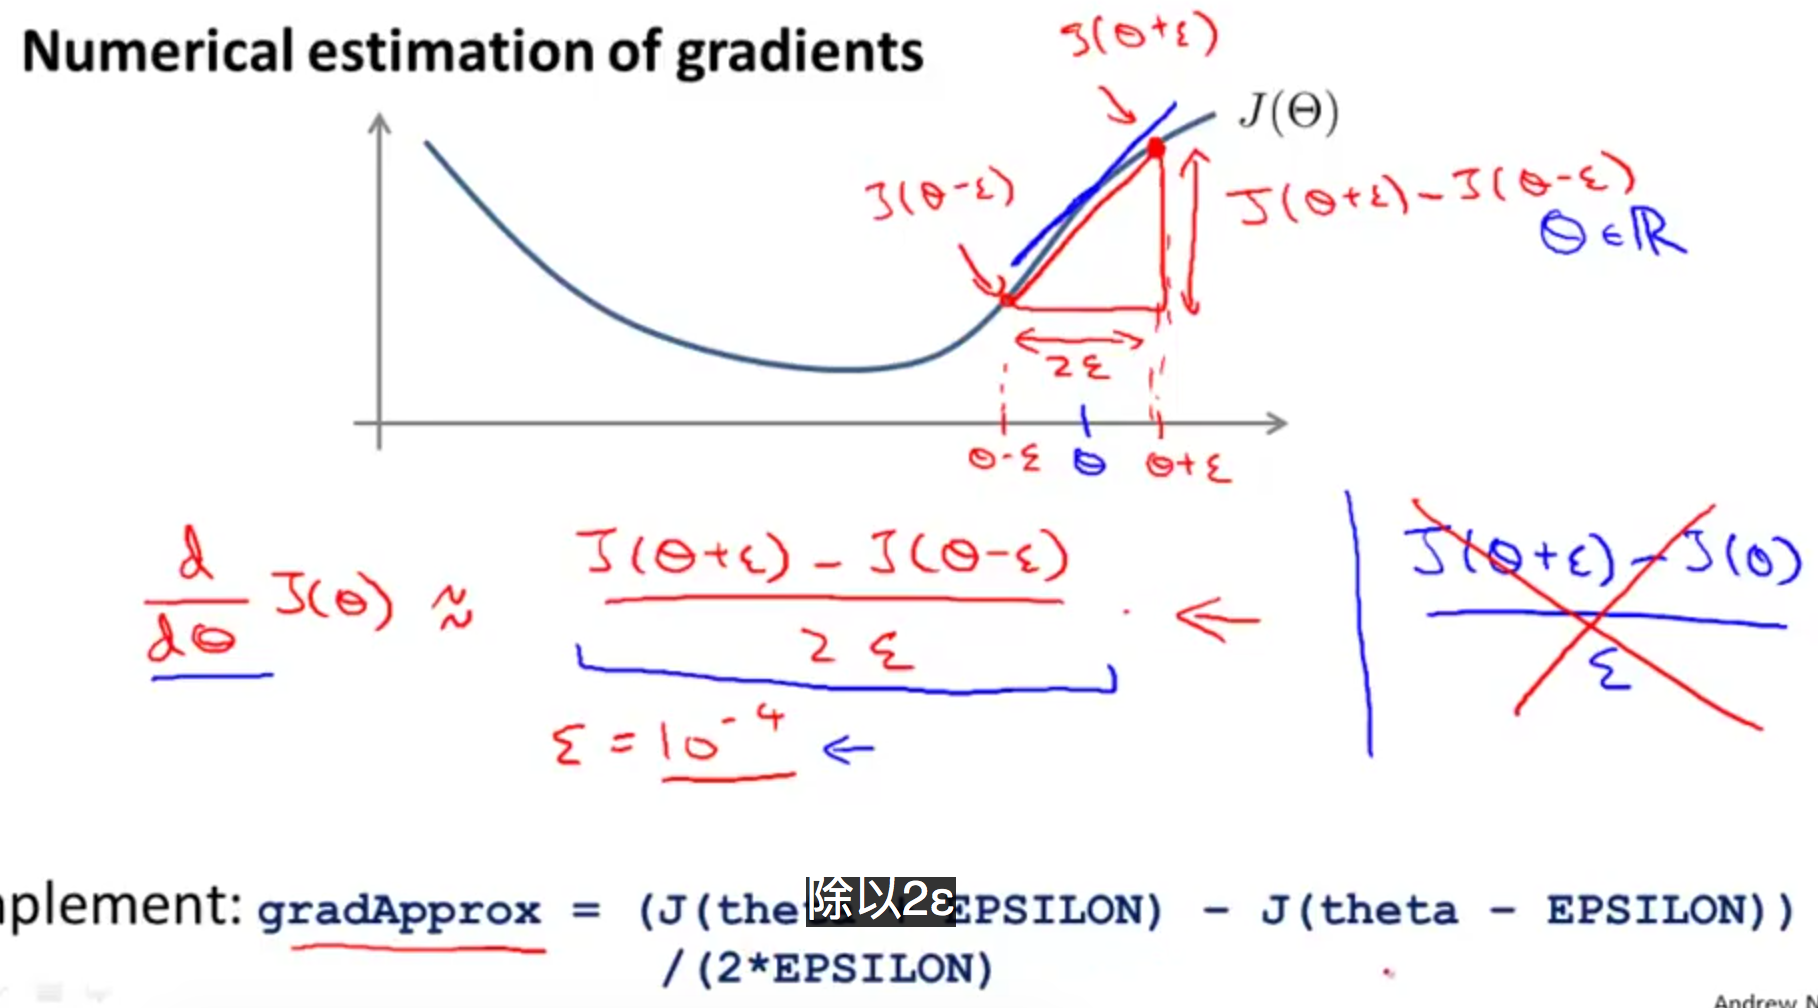 Numerical estimation of gradients
J(θ+ε)
J(Θ)
J(θ-ε)
J(θ+ε)-J(θ-ε)
θ∈ℝ
2ε
θ-ε θ θ+ε
d/dθ J(θ) ≈ J(θ+ε) - J(θ-ε) / 2ε
J(θ+ε)-J(θ) / ε
ε = 10^-4
plement: gradApprox = (J(the EPSILON) - J(theta - EPSILON))
除以2ε
/(2*EPSILON)
Andrew N